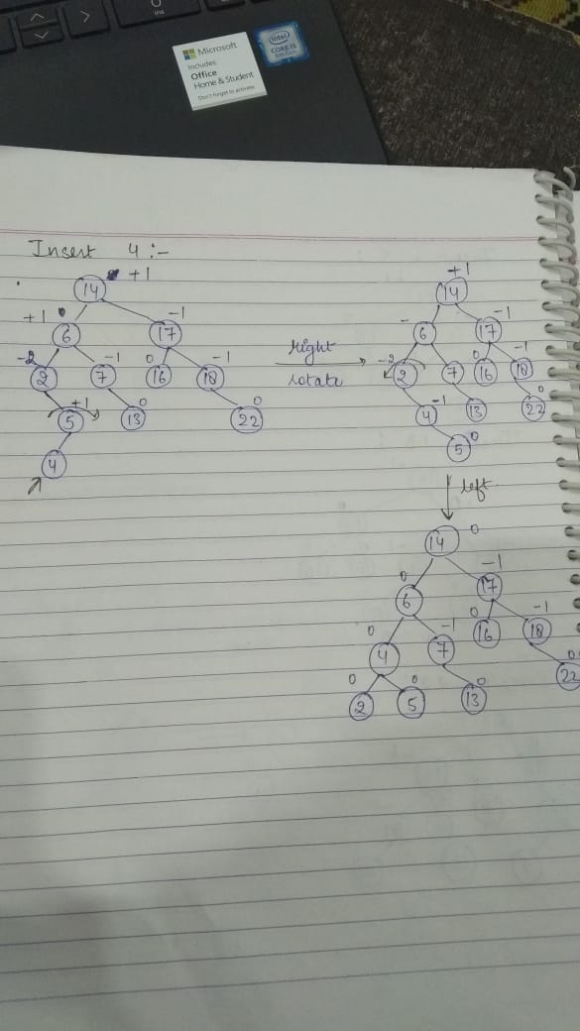 Microsoft
Includes:
Office
Home & Student
Don't forget to activate.
intel
CORE i5
Insert 4 :-
+1
14
+1 -1
6 17
-2 -1 0 -1
2 7 16 18
+1 0 0
5 13 22
4
right
rotate
+1
14
- -1
6 17
-2 0 -1
2 7 16 18
-1 0
4 13 22
0
5
left
14 0
0 -1
6 17
0 -1 0 -1
4 7 16 18
0 0 0 0
2 5 13 22